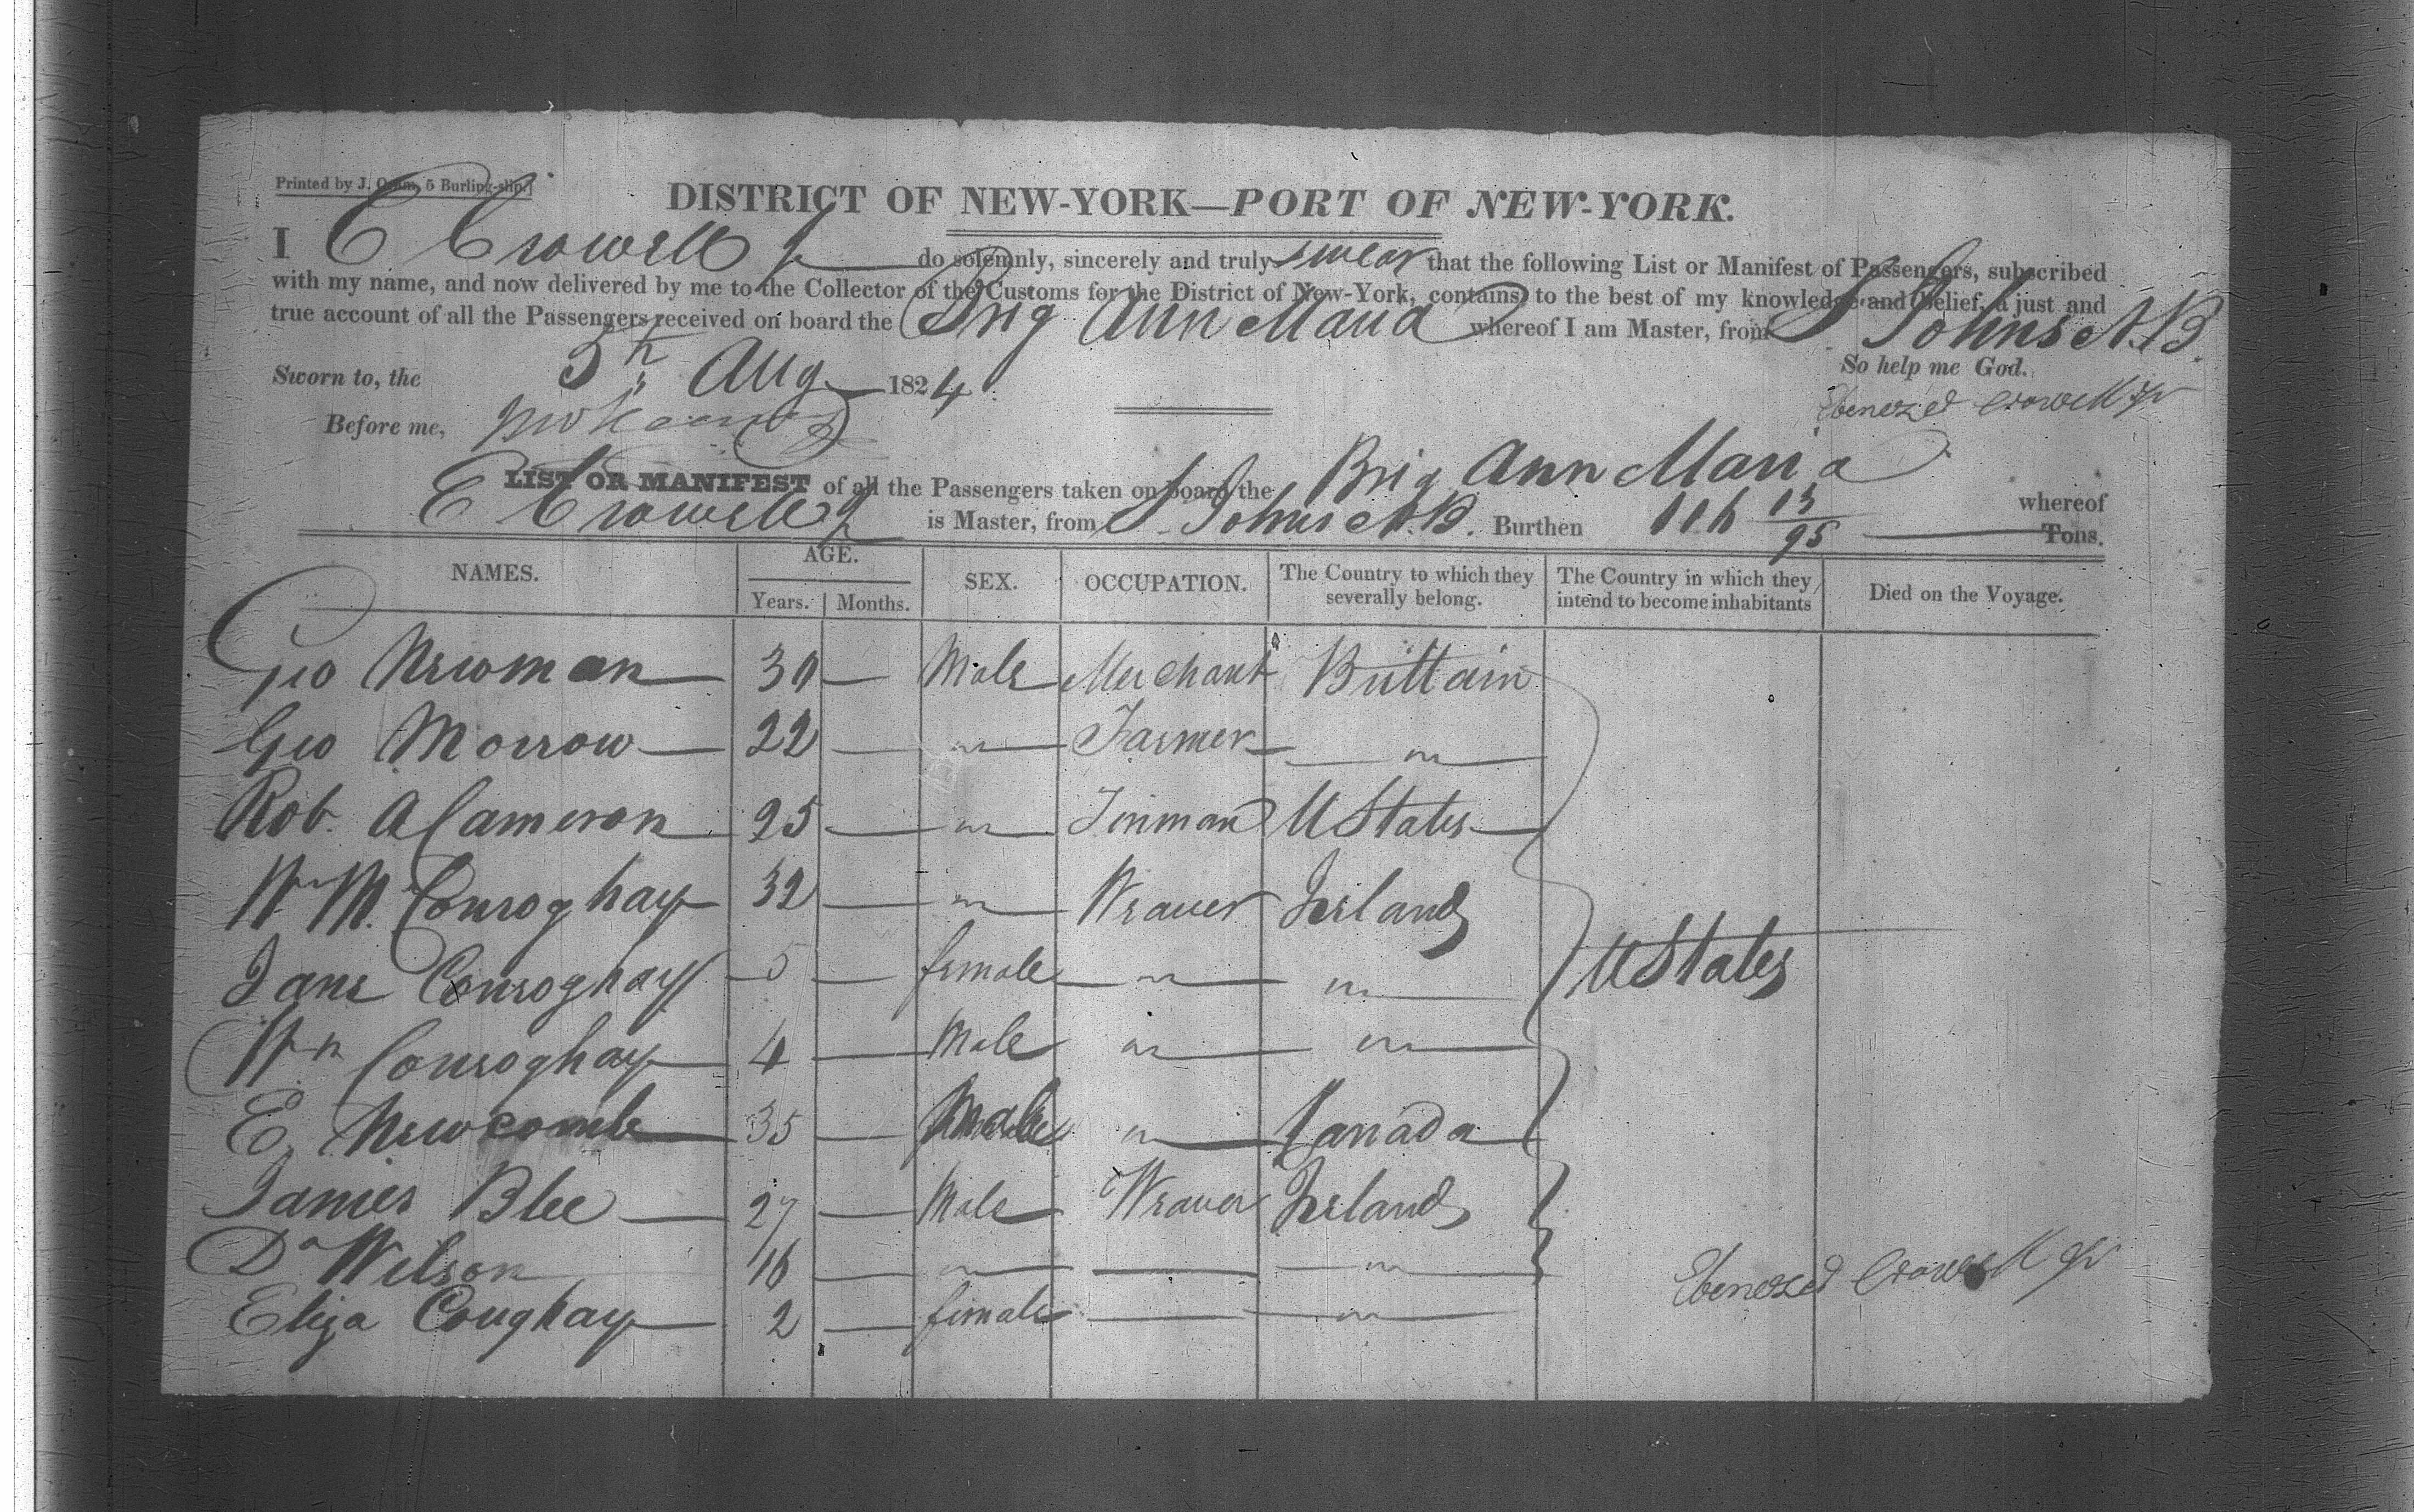 Printed by J. Oram, 5 Burling-slip.]
DISTRICT OF NEW-YORK—PORT OF NEW-YORK.
I E Crowell Jr do solemnly, sincerely and truly swear that the following List or Manifest of Passengers, subscribed
with my name, and now delivered by me to the Collector of the Customs for the District of New-York, contains, to the best of my knowledge and belief, a just and
true account of all the Passengers received on board the Brig Ann Maria whereof I am Master, from St Johns N.B.
Sworn to, the 5th Aug 1824 So help me God.
Before me, Ebenezer Crowell Jr
LIST OR MANIFEST of all the Passengers taken on board the Brig Ann Maria whereof
E Crowell Jr is Master, from St Johns N.B. Burthen 116 13/95 Tons.
NAMES. AGE. SEX. OCCUPATION. The Country to which they severally belong. The Country in which they intend to become inhabitants Died on the Voyage.
Years. Months.
Geo Newman 30 — Male Merchant Brittain
Geo Morrow 22 — " Farmer "
Rob. A Cameron 25 — " Tinman U States
Wm M. Conroghay 32 — " Weaver Ireland
Jane Conroghay 5 — female " " U States
Wm Conroghay 4 — Male " "
E. Newcomb 35 — " Canada
James Blee 27 — Male Weaver Ireland
Da Wilson 16 — " — "
Eliza Coughay 2 — female — "
Ebenezer Crowell Jr